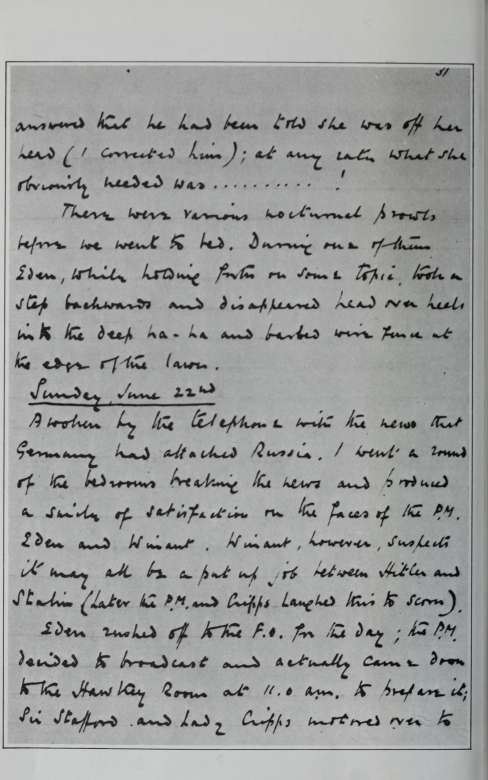 51
answered that he had been told she was off her
head (I corrected him); at any rate what she
obviously needed was .......... !
There were various nocturnal prowls
before we went to bed. During one of them
Eden, while holding forth on some topic, took a
step backwards and disappeared head over heels
into the deep ha-ha and barbed wire fence at
the edge of the lawn.
Sunday, June 22nd
Awoken by the telephone with the news that
Germany had attacked Russia. I went a round
of the bedrooms breaking the news and produced
a smile of satisfaction on the faces of the P.M.
Eden and Winant. Winant, however, suspects
it may all be a put up job between Hitler and
Stalin (Later the P.M. and Cripps laughed this to scorn).
Eden rushed off to the F.O. for the day; the P.M.
decided to broadcast and actually came down
to the Hawtrey Room at 11.0 a.m. to prepare it;
Sir Stafford and Lady Cripps motored over to